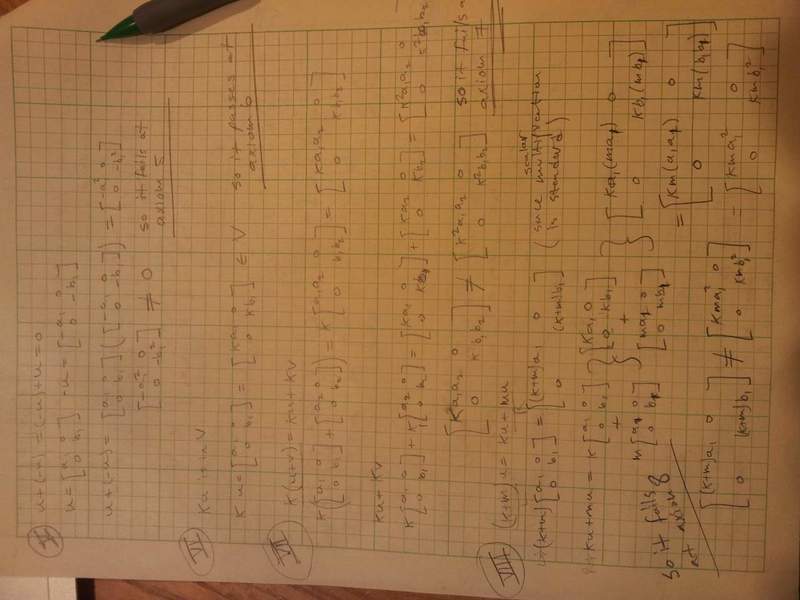 V u+(-u) = (-u)+u = 0
u = [a₁ 0; 0 b₁] -u = [-a₁ 0; 0 -b₁]
u+(-u) = [a₁ 0; 0 b₁] ([-a₁ 0; 0 -b₁]) = [-a₁² 0; 0 -b₁²]
[-a₁² 0; 0 -b₁²] ≠ 0 so it fails at
axiom 5
VI Ku in V
K·u = [a₁ 0; 0 b₁] = [Ka₁ 0; 0 Kb₁] ∈ V so it passes at
axiom 6
VII K(u+v) = Ku+Kv
K([a₁ 0; 0 b₁] + [a₂ 0; 0 b₂]) = K[a₁a₂ 0; 0 b₁b₂] = [Ka₁a₂ 0; 0 Kb₁b₂]
Ku+Kv
K[a₁ 0; 0 b₁] + K[a₂ 0; 0 b₂] = [Ka₁ 0; 0 Kb₁] + [Ka₂ 0; 0 Kb₂] = [K²a₁a₂ 0; 0 K²b₁b₂]
[Ka₁a₂ 0; 0 Kb₁b₂] ≠ [K²a₁a₂ 0; 0 K²b₁b₂] so it fails at
axiom 7
VIII (K+m)u = Ku+mu
(K+m)[a₁ 0; 0 b₁] = [(K+m)a₁ 0; 0 (K+m)b₁] (since scalar multiplication
is standard)
Ku+mu = K[a₁ 0; 0 b₁] + m[a₁ 0; 0 b₁] } [Ka₁ 0; 0 Kb₁] + [ma₁ 0; 0 mb₁] } [Ka₁(ma₁) 0; 0 Kb₁(mb₁)]
= [Km(a₁a₁) 0; 0 Km(b₁b₁)]
so it fails
at axiom 8
[(K+m)a₁ 0; 0 (K+m)b₁] ≠ [Kma₁² 0; 0 Kmb₁²] = [Kma₁² 0; 0 Kmb₁²]